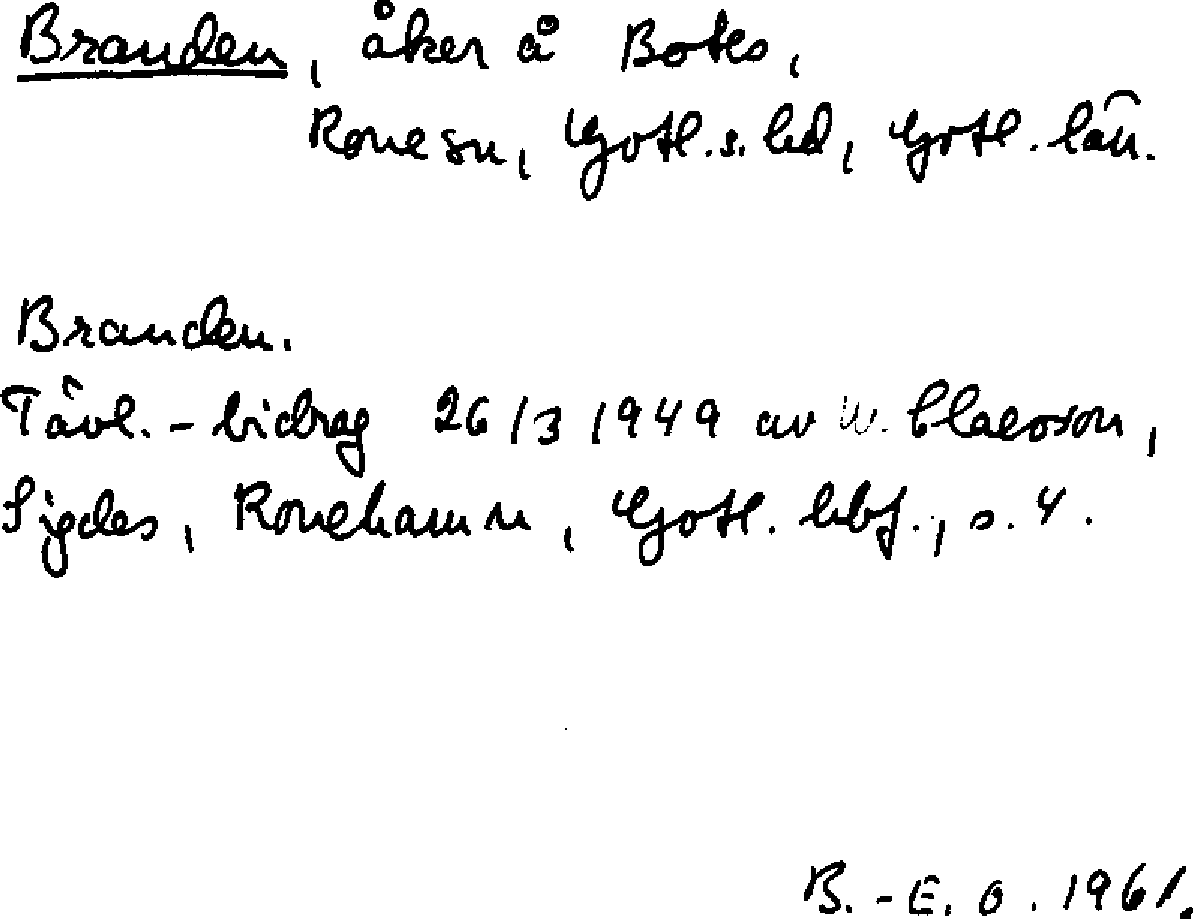 Branden, åker å Botes,
Rone sn, Gotl. s. hd, Gotl. län.
Branden.
Tävl.-bidrag 26/3 1949 av W. Claesson,
Sigdes, Ronehamn, Gotl. hbf., s. 4.
B.-E. O. 1961.